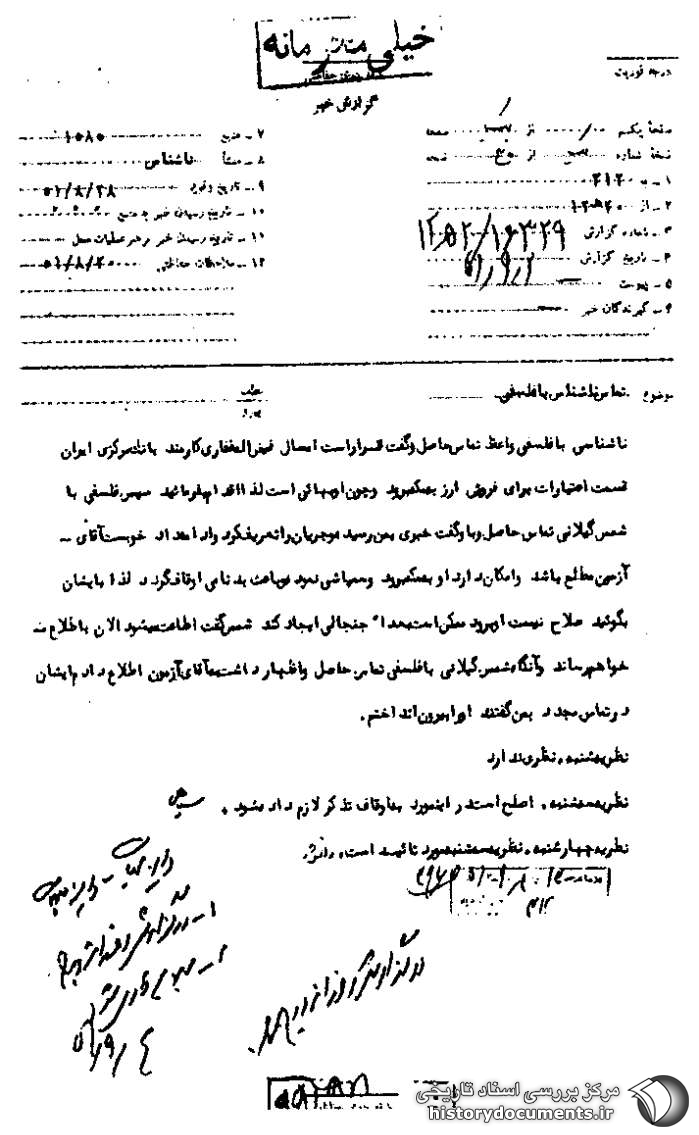 خیلی محرمانه
درجه فوریت
گزارش خبر
صفحه یکم از صفحه
نسخه شماره از نسخه
۱ ـ به ۳۱۲
۲ ـ از ۲۰ ه ۱۲
۳ ـ شماره گزارش ۱۶۳۲۹ / ۲۰ ه ۱۲
۴ ـ تاریخ گزارش
۵ ـ پیوست
۶ ـ گیرندگان خبر
۷ ـ منبع ۱۰۸۰
۸ ـ منشأ ناشناس
۹ ـ تاریخ وقوع ۵۱/۸/۲۸
۱۰ ـ تاریخ رسیدن خبر به منبع
۱۱ ـ تاریخ رسیدن خبر برهبر عملیات محل
۱۲ ـ ملاحظات حفاظتی
موضوع تماس ناشناس با فلسفی
ناشناسی با فلسفی واعظ تماس حاصل و گفت قرار است امسال فیض اله غفاری کارمند بانک مرکزی ایران
قسمت اعتبارات برای فروش ارز به مکه برود و چون او بهائی است لذا اقدام بفرمائید سپس فلسفی با
شمس گیلانی تماس حاصل و باو گفت خبری بمن رسیده و جریان را تعریف کرد و ادامه داد خوبست آقای ـ
آزمون مطلع باشد و امکان دارد او به مکه برود و عیاشی نموده و باعث بدنامی اوقاف گردد لذا بایشان
بگوئید صلاح نیست او برود ممکن است بعداً جنجالی ایجاد کند شمس گفت اطاعت میشود الان باطلاع ـ
خواهم رساند و آنگاه شمس گیلانی با فلسفی تماس حاصل و اظهار داشت به آقای آزمون اطلاع دادم ایشان
در تماس مجدد بمن گفتند او را بیرون انداختم.
نظریه شنبه. نظری ندارد
نظریه سه شنبه. اصلح است در اینمورد به اوقاف تذکر لازم داده شود.
نظریه چهارشنبه. نظریه سه شنبه مورد تائید است.
در گزارش روز از دید
مرکز بررسی اسناد تاریخی
historydocuments.ir